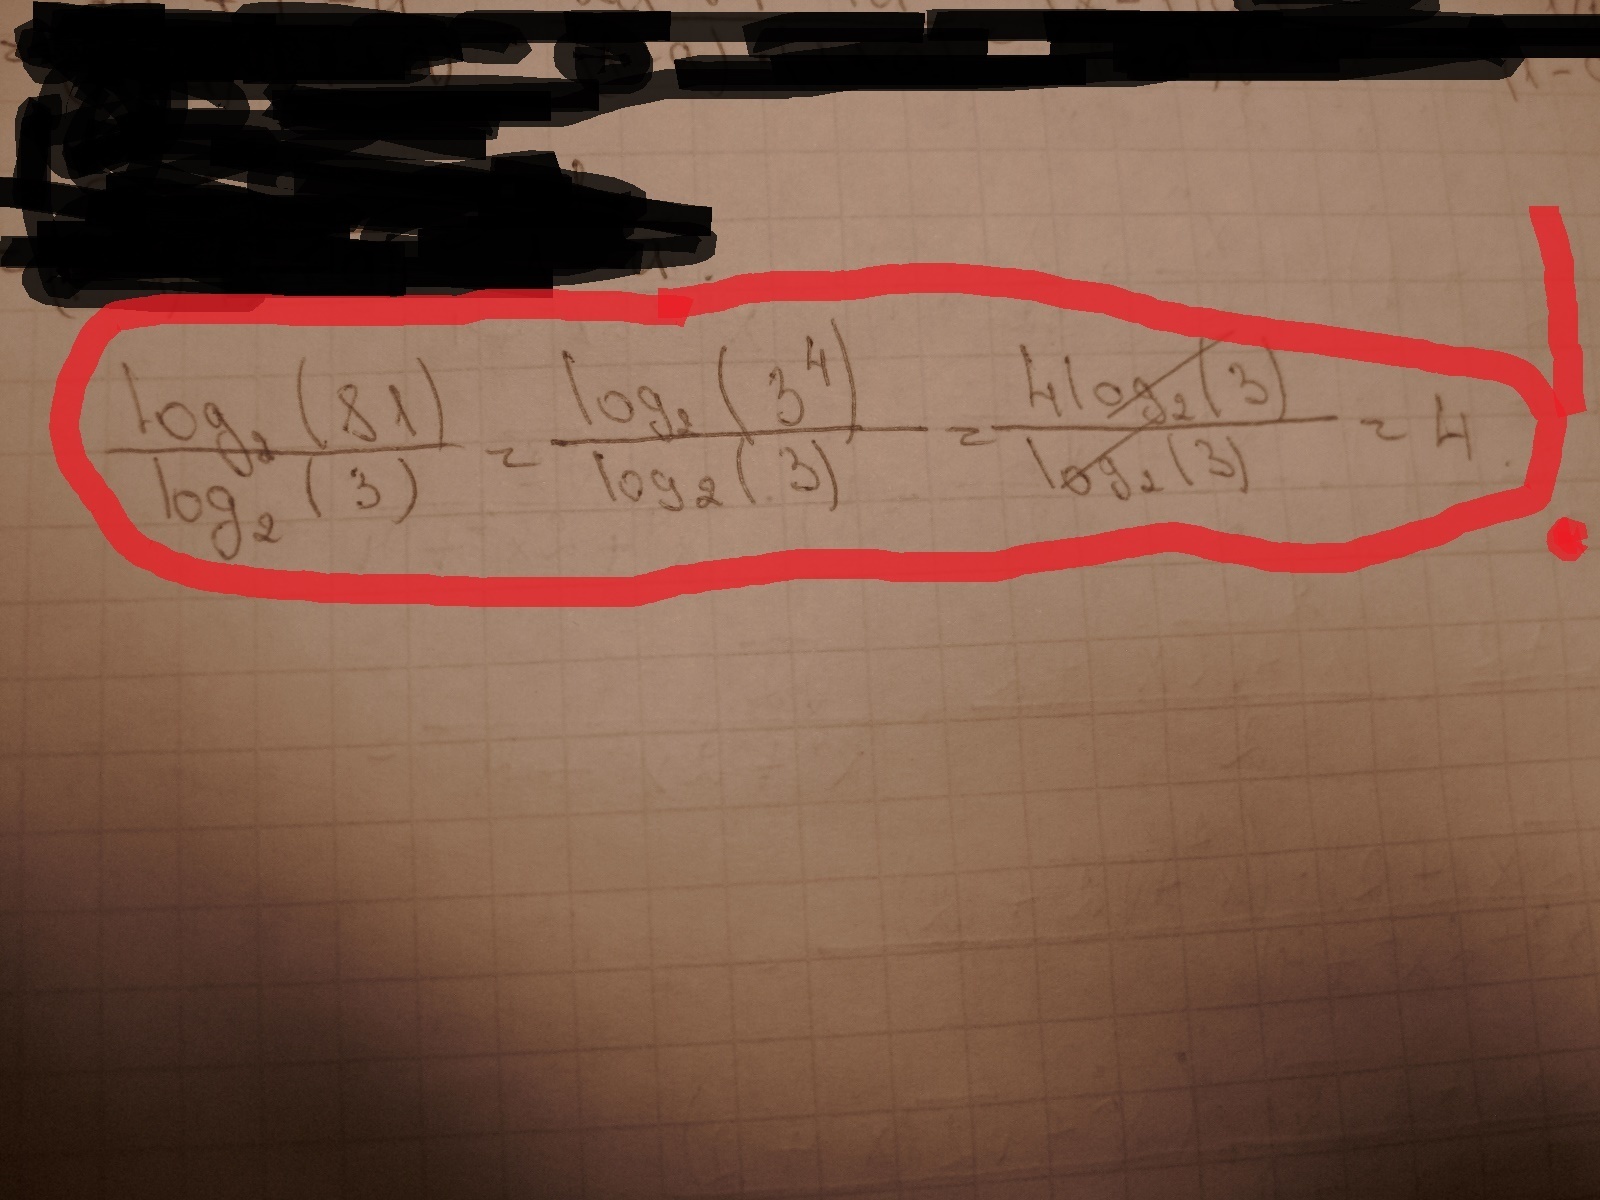 log₂(81)/log₂(3) = log₂(3⁴)/log₂(3) = 4log₂(3)/log₂(3) = 4